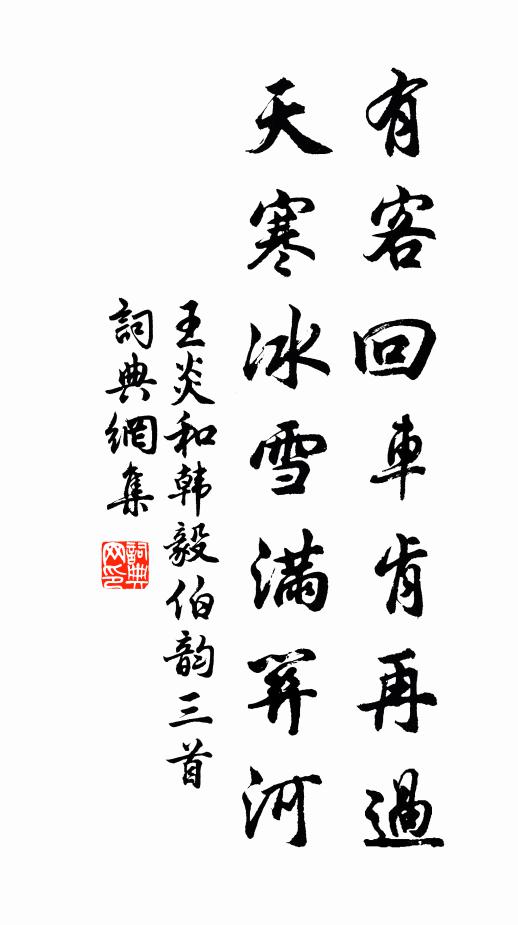 有客回車肯再過
天寒冰雪滿關河
王炎和韩毅伯韵三首
詞典網集
詞典網印